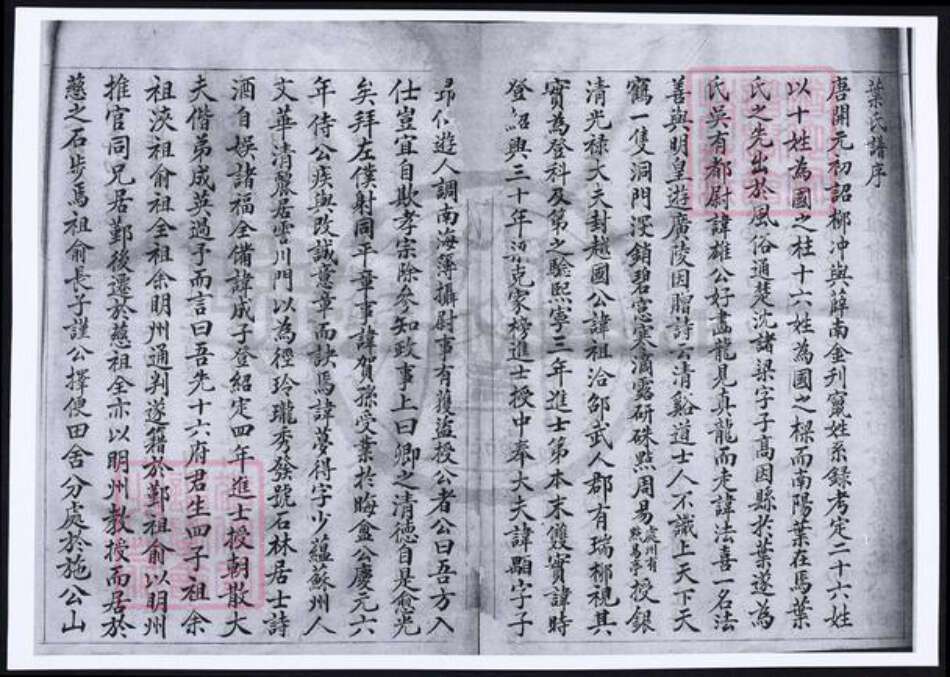 葉氏譜序
唐開元初詔柳冲與薛南金刊竄姓系録考定二十六姓
以十姓為國之柱十六姓為國之樑而南陽葉在焉葉
氏之先出於風俗通楚沈諸梁字子高因縣於葉遂為
氏吳有都尉諱雄公好畵龍見真龍而走諱法喜一名法
善與明皇遊廣陵因贈詩云清谿道士人不識上天下天
鶴一隻洞門深鎖碧窓寒滴露研硃點周易處州有點易亭授銀
清光禄大夫封越國公諱祖洽邵武人郡有瑞柳視其
實為登科及第之驗熙寧三年進士第本末雙實諱時
登紹興三十年梁克家榜進士授中奉大夫諱顒字子
昻仕遊人調南海簿攝尉事有獲盜授公者公曰吾方入
仕豈宜自欺孝宗除參知政事上曰卿之清德自是愈光
矣拜左僕射同平章事諱賀孫受業於晦盦公慶元六
年侍公疾與改誠意章而訣焉諱夢得字少蘊蘇州人
文華清麗居霅川門以為徑玲瓏秀發號石林居士詩
酒自娛諸福全備諱成子登紹定四年進士授朝散大
夫偕弟成英過予而言曰吾先十六府君生四子祖余
祖浹祖俞祖全祖余明州通判遂籍於鄞祖俞以明州
推官同兄居鄞後遷於慈祖全亦以明州教授而居於
慈之石步焉祖俞長子謹公擇便田舍分處於施公山